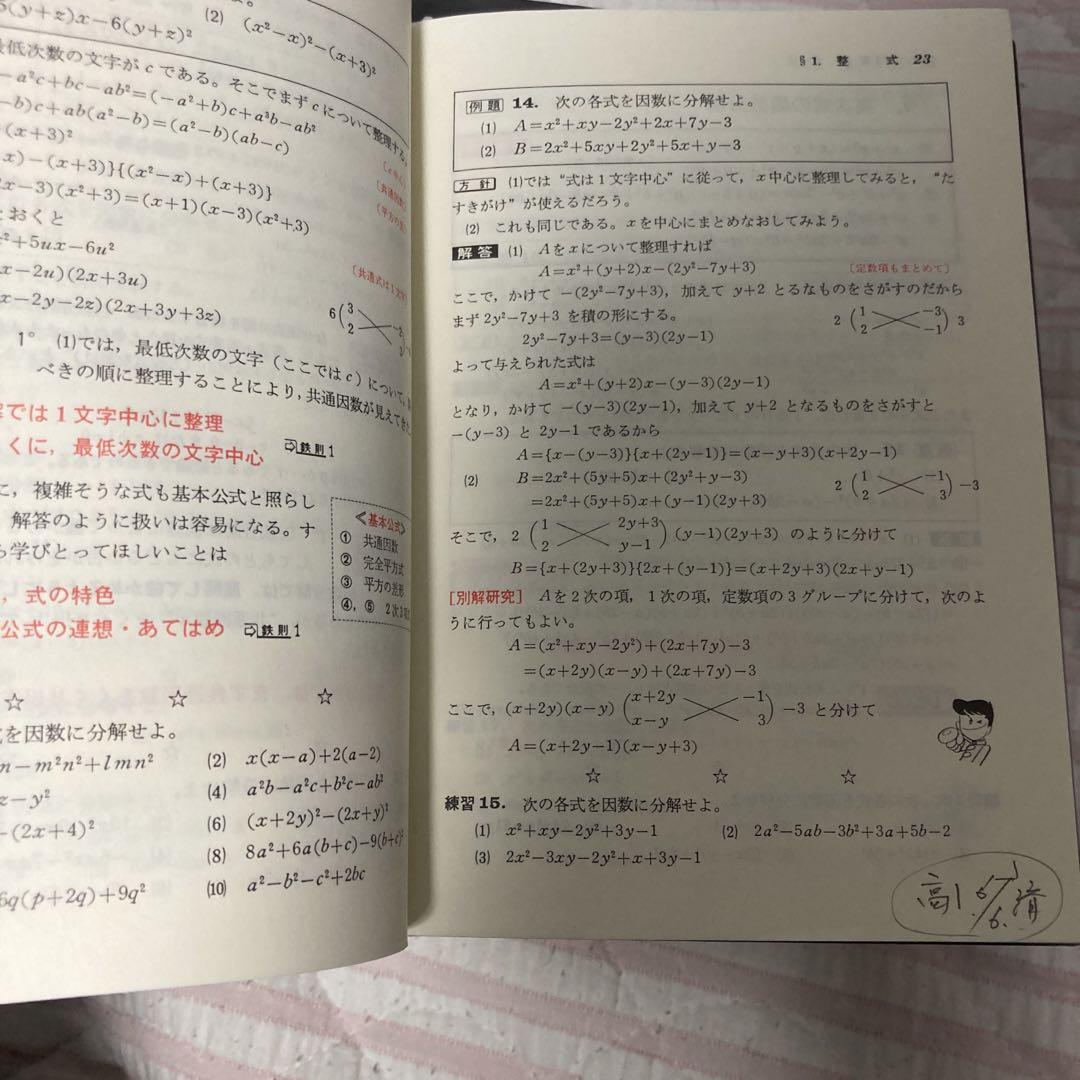 5(y+z)x−6(y+z)²
(2) (x²−x)²−(x+3)²
最低次数の文字が c である。そこでまず c について整理する。
−a²c+bc−ab²=(−a²+b)c+a³b−ab²
−b)c+ab(a²−b)=(a²−b)(ab−c)
(x+3)²
x)−(x+3)}{(x²−x)+(x+3)}
2x−3)(x²+3)=(x+1)(x−3)(x²+3)
[共通因数]
とおくと
x²+5ux−6u²
x−2u)(2x+3u)
[共通式は1文字]
x−2y−2z)(2x+3y+3z)
6 ( 3 2
1° (1)では,最低次数の文字(ここでは c)について,
べきの順に整理することにより,共通因数が見えてきた
解では1文字中心に整理
くに,最低次数の文字中心
⇨鉄則1
に,複雑そうな式も基本公式と照らし
解答のように扱いは容易になる。す
ら学びとってほしいことは
≪基本公式≫
① 共通因数
② 完全平方式
③ 平方の差形
④,⑤ 2次3項
,式の特色
公式の連想・あてはめ
⇨鉄則1
☆ ☆ ☆
式を因数に分解せよ。
n−m²n²+lmn²
(2) x(x−a)+2(a−2)
z−y²
(4) a²b−a²c+b²c−ab²
−(2x+4)²
(6) (x+2y)²−(2x+y)²
(8) 8a²+6a(b+c)−9(b+c)²
6q(p+2q)+9q²
(10) a²−b²−c²+2bc
§1. 整 式 23
例題 14. 次の各式を因数に分解せよ。
(1) A=x²+xy−2y²+2x+7y−3
(2) B=2x²+5xy+2y²+5x+y−3
方針 (1)では“式は1文字中心”に従って,x中心に整理してみると,“た
すきがけ”が使えるだろう。
(2) これも同じである。xを中心にまとめなおしてみよう。
解答 (1) Aをxについて整理すれば
A=x²+(y+2)x−(2y²−7y+3)
[定数項もまとめて]
ここで,かけて −(2y²−7y+3),加えて y+2 とるなものをさがすのだから
まず 2y²−7y+3 を積の形にする。
2 ( 1 2 −3 −1 ) 3
2y²−7y+3=(y−3)(2y−1)
よって与えられた式は
A=x²+(y+2)x−(y−3)(2y−1)
となり,かけて −(y−3)(2y−1),加えて y+2 となるものをさがすと
−(y−3) と 2y−1 であるから
A={x−(y−3)}{x+(2y−1)}=(x−y+3)(x+2y−1)
(2) B=2x²+(5y+5)x+(2y²+y−3)
=2x²+(5y+5)x+(y−1)(2y+3)
2 ( 1 2 −1 3 ) −3
そこで,2 ( 1 2 2y+3 y−1 ) (y−1)(2y+3) のように分けて
B={x+(2y+3)}{2x+(y−1)}=(x+2y+3)(2x+y−1)
[別解研究] Aを2次の項,1次の項,定数項の3グループに分けて,次のよ
うに行ってもよい。
A=(x²+xy−2y²)+(2x+7y)−3
=(x+2y)(x−y)+(2x+7y)−3
ここで,(x+2y)(x−y) ( x+2y x−y −1 3 ) −3 と分けて
A=(x+2y−1)(x−y+3)
☆ ☆ ☆
練習15. 次の各式を因数に分解せよ。
(1) x²+xy−2y²+3y−1 (2) 2a²−5ab−3b²+3a+5b−2
(3) 2x²−3xy−2y²+x+3y−1
高1